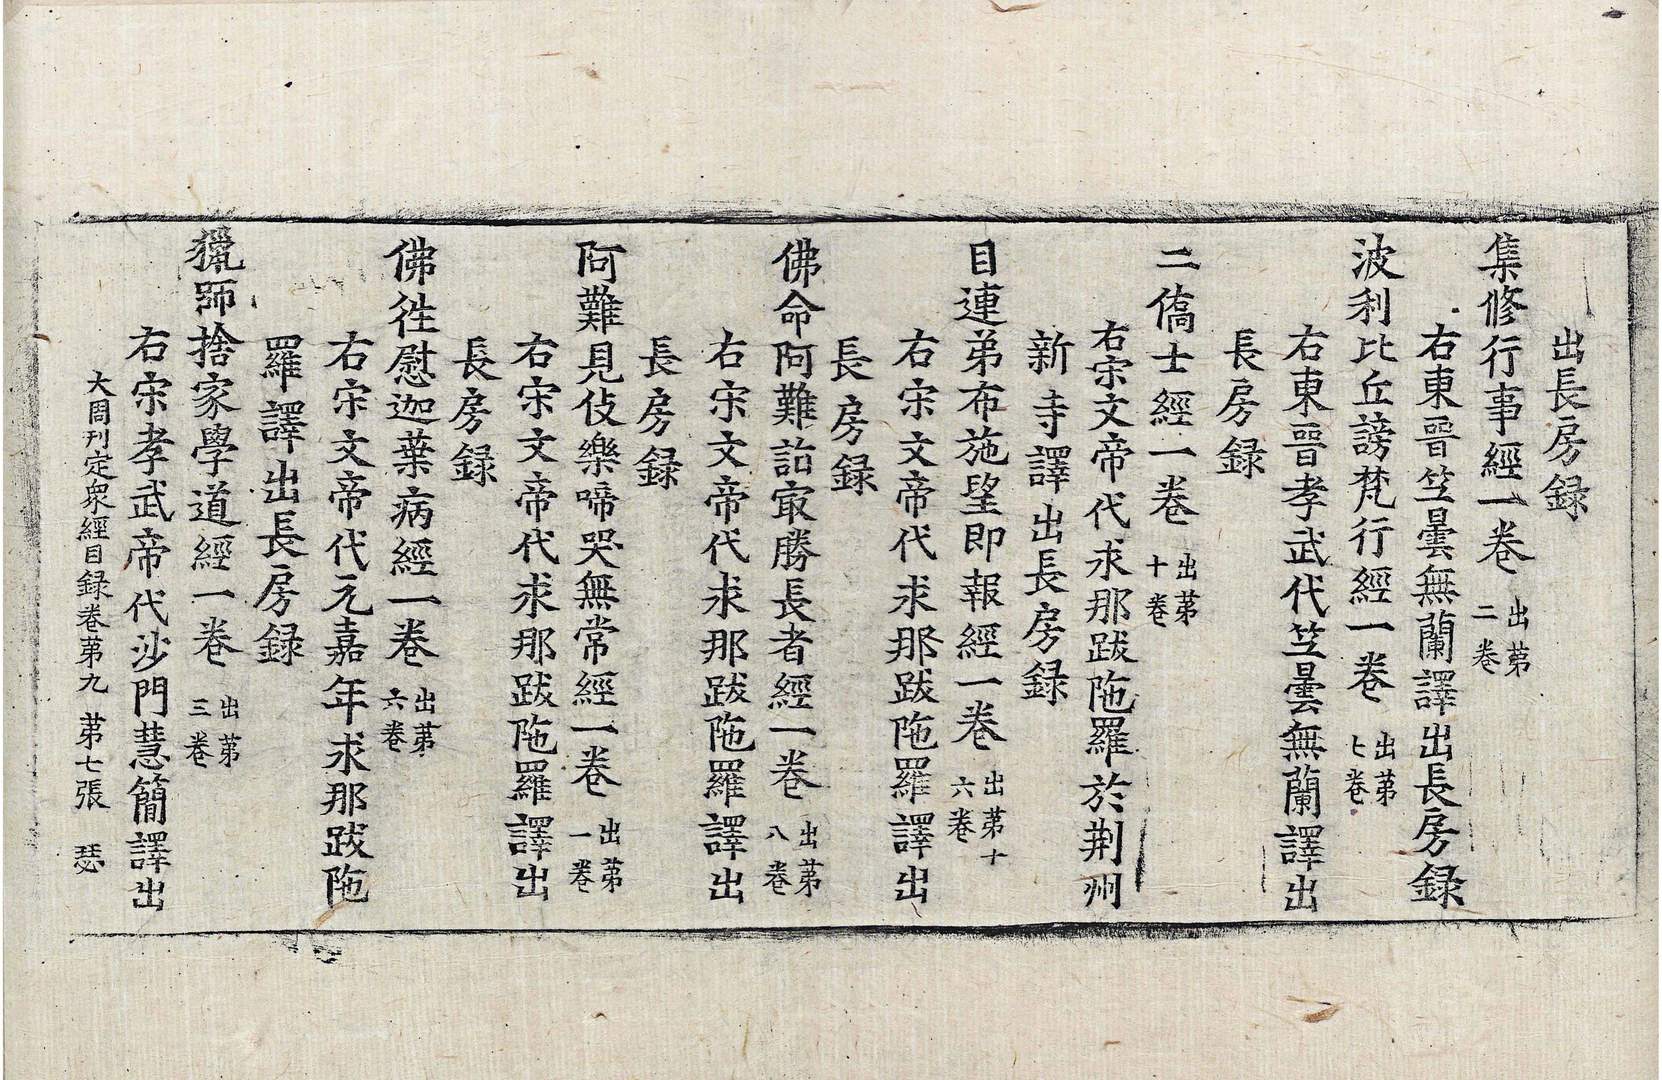 出長房録
集修行事經一卷 出苐二卷
右東晉竺曇無蘭譯出長房録
波利比丘謗梵行經一卷 出苐七卷
右東晉孝武代竺曇無蘭譯出
長房録
二僑士經一卷 出苐十卷
右宋文帝代求那跋陁羅於荆州
新寺譯出長房録
目連弟布施望即報經一卷 出苐十六卷
右宋文帝代求那跋陁羅譯出
長房録
佛命阿難詣冣勝長者經一卷 出苐八卷
右宋文帝代求那跋陁羅譯出
長房録
阿難見伎樂啼哭無常經一卷 出苐一卷
右宋文帝代求那跋陁羅譯出
長房録
佛徃慰迦葉病經一卷 出苐六卷
右宋文帝代元嘉年求那跋陁
羅譯出長房録
獵師捨家學道經一卷 出苐三卷
右宋孝武帝代沙門慧簡譯出
大周刊定衆經目録卷苐九 苐七張 瑟